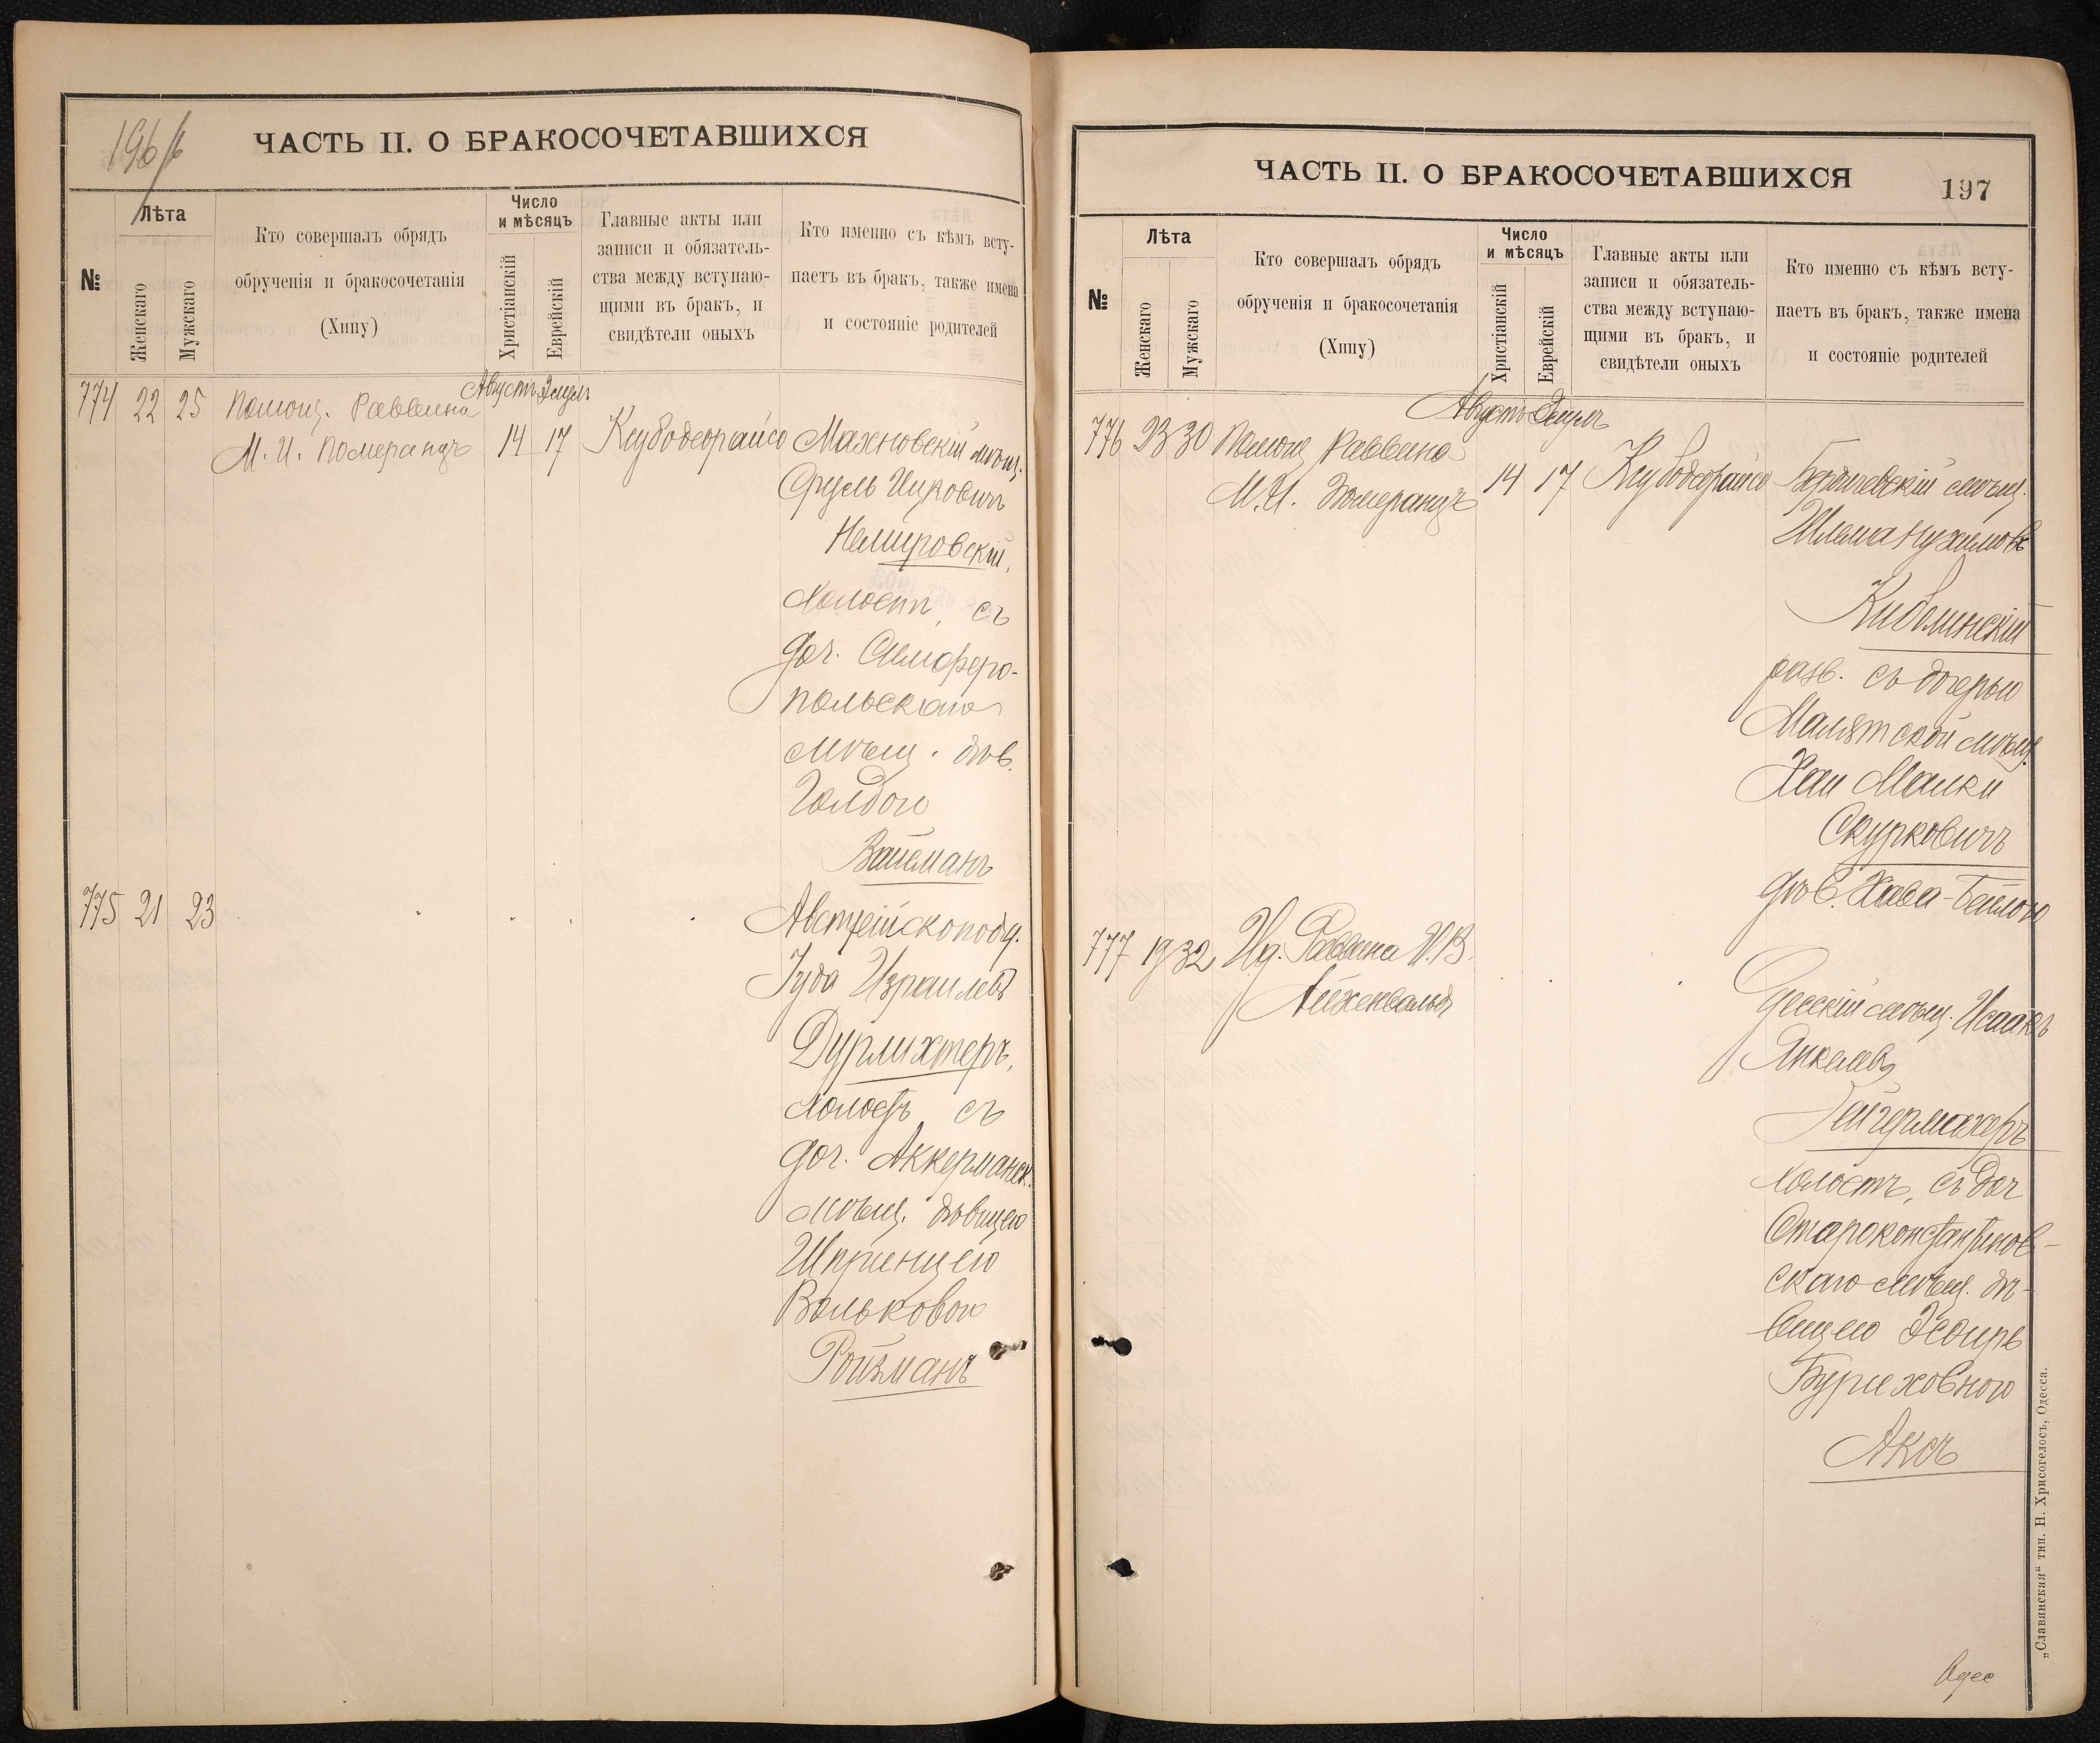 196/б
ЧАСТЬ II. О БРАКОСОЧЕТАВШИХСЯ
№
Лѣта
Женскаго
Мужскаго
Кто совершалъ обрядъ
обрученія и бракосочетанія
(Хипу)
Число
и мѣсяцъ
Христіанскій
Еврейскій
Главные акты или
записи и обязатель-
ства между вступаю-
щими въ бракъ, и
свидѣтели оныхъ
Кто именно съ кѣмъ всту-
паетъ въ бракъ, также имена
и состояніе родителей
774 22 25 Помощ. Раввина
М. И. Померанцъ
Августъ Элулъ
14 17
Ксубодеорайсо
Махновскій мѣщ.
Сруль Ицковичъ
Немировскій,
холостъ, съ
доч. Симферо-
польскаго
мѣщ. дѣв.
Голдою
Вайсманъ
775 21 23
Австрійскоподд.
Іуда Израилевъ
Дурлихтеръ,
холостъ съ
доч. Аккерманск.
мѣщ. дѣвицею
Шпринцею
Вольковою
Ройзманъ
ЧАСТЬ II. О БРАКОСОЧЕТАВШИХСЯ
197
№
Лѣта
Женскаго
Мужскаго
Кто совершалъ обрядъ
обрученія и бракосочетанія
(Хипу)
Число
и мѣсяцъ
Христіанскій
Еврейскій
Главные акты или
записи и обязатель-
ства между вступаю-
щими въ бракъ, и
свидѣтели оныхъ
Кто именно съ кѣмъ всту-
паетъ въ бракъ, также имена
и состояніе родителей
776 23 30 Помощ Раввина
М. И. Померанцъ
Августъ Элулъ
14 17
Ксубодеорайсо
Бердичевскій мѣщ.
Шлема Нухимовъ
Киблинскій
разв. съ дочерью
Малятской мѣщ.
Хаи Малки
Скурковичъ
дѣв. Хава-Бейлою
777 19 32 Ид. Раввина И. В.
Айхенвальд
Одесскій мѣщ. Исаакъ
Янкелевъ
Гейгермахеръ
холостъ, съ доч
Староконстантинов-
скаго мѣщ. дѣ-
вицею Эсѳирь
Буриховною
Аксъ
„Славянская“ тип. Н. Хрисогелосъ, Одесса.